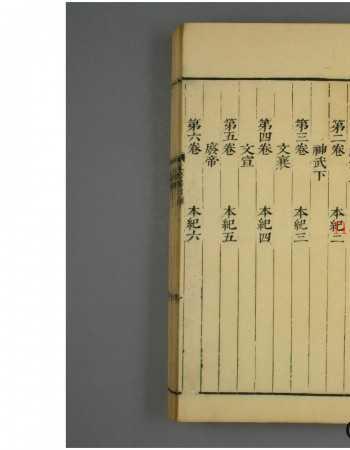 第二卷 本紀二
神武下
第三卷 本紀三
文襄
第四卷 本紀四
文宣
第五卷 本紀五
廢帝
第六卷 本紀六